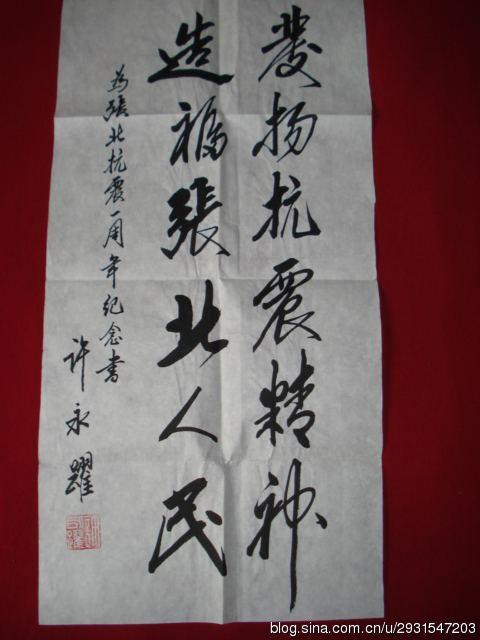 發扬抗震精神
造福張北人民
为張北抗震一周年纪念書
许永躍
blog.sina.com.cn/u/2931547203